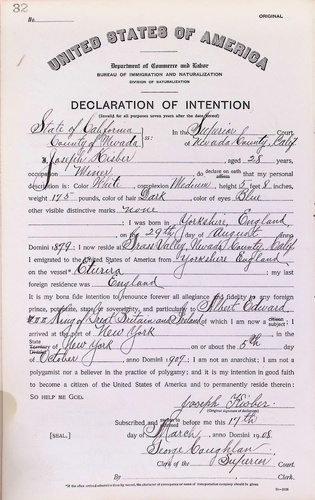 32
ORIGINAL
No.
UNITED STATES OF AMERICA
Department of Commerce and Labor
BUREAU OF IMMIGRATION AND NATURALIZATION
DIVISION OF NATURALIZATION
DECLARATION OF INTENTION
(Invalid for all purposes seven years after the date hereof)
State of California
County of Nevada ss:
In the Superior Court.
of Nevada County, Calif
I, Joseph Kisber, aged 28 years,
occupation Miner, do declare on oath that my personal
description is: Color White, complexion Medium, height 5 feet 8 inches,
weight 175 pounds, color of hair Dark, color of eyes Blue
other visible distinctive marks none
I was born in Yorkshire, England
on the 29th day of August, Anno
Domini 1879; I now reside at Grass Valley, Nevada County, Calif
I emigrated to the United States of America from Yorkshire England
on the vessel; my last
foreign residence was England
It is my bona fide intention to renounce forever all allegiance and fidelity to any foreign
prince, potentate, state, or sovereignty, and particularly to Albert Edward
King of Great Britain and Ireland, of which I am now a subject; I
arrived at the port of New York, in the
State of New York on or about the 5th day
of October, anno Domini 1907; I am not an anarchist; I am not a
polygamist nor a believer in the practice of polygamy; and it is my intention in good faith
to become a citizen of the United States of America and to permanently reside therein:
SO HELP ME GOD.
Joseph Kisber
(Original signature of declarant)
Subscribed and before me this 17th
[SEAL.] day of March, anno Domini 1908.
George Coughlan
Clerk of the Superior Court.
By, Clerk.